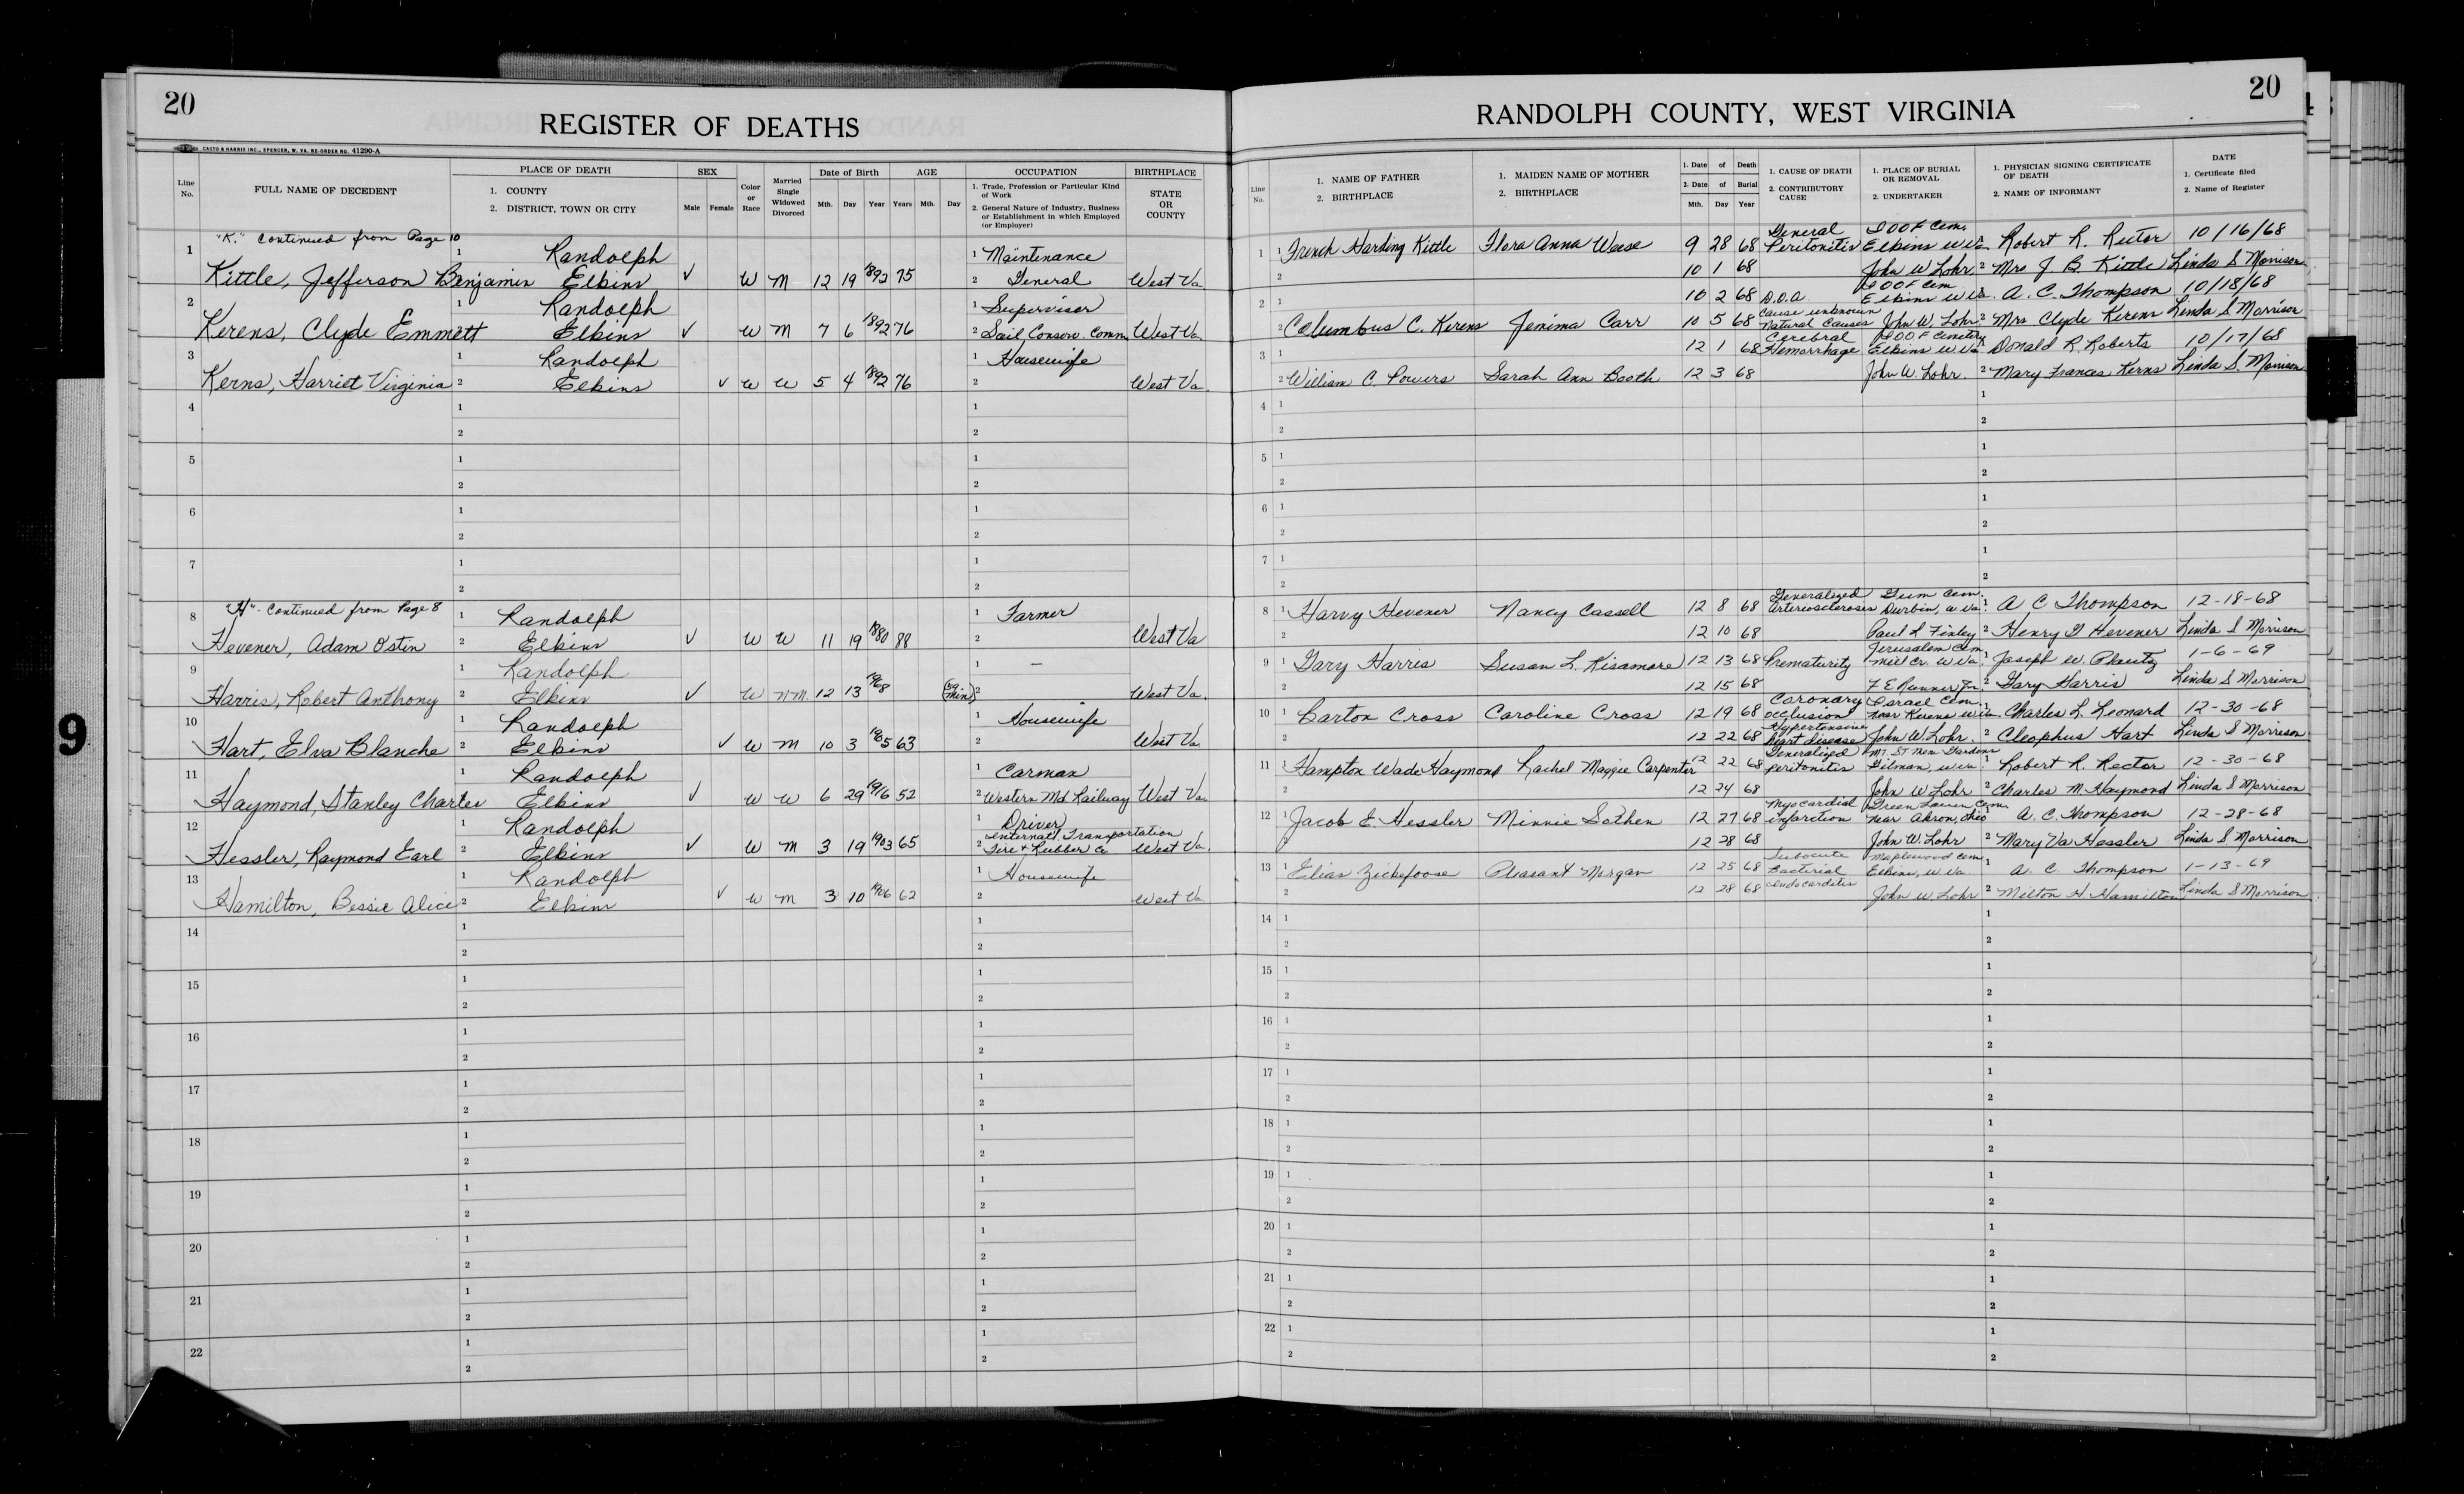 20
REGISTER OF DEATHS
CASTO & HARRIS INC., SPENCER, W. VA. RE-ORDER NO. 41290-A
Line No. FULL NAME OF DECEDENT PLACE OF DEATH 1. COUNTY 2. DISTRICT, TOWN OR CITY SEX Male Female Color or Race Married Single Widowed Divorced Date of Birth Mth. Day Year AGE Years Mth. Day OCCUPATION 1. Trade, Profession or Particular Kind of Work 2. General Nature of Industry, Business or Establishment in which Employed (or Employer) BIRTHPLACE STATE OR COUNTY
"K." Continued from Page 10
1 1 Randolph 1 Maintenance
Kittle, Jefferson Benjamin Elkins ✓ W M 12 19 1892 75 2 General West Va
2 1 Randolph 1 Supervisor
Kerens, Clyde Emmett Elkins ✓ W M 7 6 1892 76 2 Soil Conserv. Comm West Va
3 1 Randolph 1 Housewife
Kerns, Harriet Virginia 2 Elkins ✓ W W 5 4 1892 76 2 West Va.
4 1 1
2 2
5 1 1
2 2
6 1 1
2 2
7 1 1
2 2
"H"- Continued from Page 8
8 1 Randolph 1 Farmer
Hevener, Adam Ostin 2 Elkins ✓ W W 11 19 1880 88 2 West Va
9 1 Randolph 1 —
Harris, Robert Anthony 2 Elkins ✓ W NM. 12 13 1968 min) 2 West Va.
10 1 Randolph 1 Housewife
Hart, Elva Blanche 2 Elkins ✓ W M 10 3 1905 63 2 West Va.
11 1 Randolph 1 Carman
Haymond, Stanley Charles Elkins ✓ W W 6 29 1916 52 2 Western Md Railway West Va.
12 1 Randolph 1 Driver
Hessler, Raymond Earl 2 Elkins ✓ W M 3 19 1903 65 Internat'l Transportation 2 Tire & Rubber Co West Va.
13 1 Randolph 1 Housewife
Hamilton, Bessie Alice 2 Elkins ✓ W M 3 10 1906 62 2 West Va
14 1 1
2 2
15 1 1
2 2
16 1 1
2 2
17 1 1
2 2
18 1 1
2 2
19 1 1
2 2
20 1 1
2 2
21 1 1
2 2
22 1 1
2 2
9
20
RANDOLPH COUNTY, WEST VIRGINIA
Line No. 1. NAME OF FATHER 2. BIRTHPLACE 1. MAIDEN NAME OF MOTHER 2. BIRTHPLACE 1. Date of Death 2. Date of Burial Mth. Day Year 1. CAUSE OF DEATH 2. CONTRIBUTORY CAUSE 1. PLACE OF BURIAL OR REMOVAL 2. UNDERTAKER 1. PHYSICIAN SIGNING CERTIFICATE OF DEATH 2. NAME OF INFORMANT DATE 1. Certificate filed 2. Name of Register
1 1 French Harding Kittle Flora Anna Weese 9 28 68 General Peritonitis IOOF Cem. Elkins W Va Robert R. Rector 10/16/68
2 10 1 68 John W Lohr 2 Mrs J. B. Kittle Linda S Morrison
2 1 10 2 68 D.O.A. IOOF Cem Elkins W Va. A. C. Thompson 10/18/68
2 Columbus C. Kerens Jemima Carr 10 5 68 Cause unknown Natural Causes John W. Lohr 2 Mrs Clyde Kerens Linda S Morrison
3 1 12 1 68 Cerebral Hemorrhage IOOF Cemetery Elkins W Va Donald R. Roberts 10/17/68
2 William C. Powers Sarah Ann Booth 12 3 68 John W. Lohr. 2 Mary Frances Kerns Linda S. Morrison
4 1 1
2 2
5 1 1
2 2
6 1 1
2 2
7 1 1
2 2
8 1 Harvy Hevener Nancy Cassell 12 8 68 Generalized Arteriosclerosis Gum Cem. Durbin, W Va 1 A C Thompson 12-18-68
2 12 10 68 Paul L Finley 2 Henry G Hevener Linda S Morrison
9 1 Gary Harris Susan L. Kisamore 12 13 68 Prematurity Jerusalem Cem. Mill Cr. W Va. 1 Joseph W. Plautz 1-6-69
2 12 15 68 F E Runner Jr. 2 Gary Harris Linda S Morrison
10 1 Carton Cross Caroline Cross 12 19 68 Coronary occlusion Israel Cem. near Kerens W Va. Charles L. Leonard 12-30-68
2 12 22 68 Hypertensive heart disease John W. Lohr. 2 Cleophus Hart Linda S Morrison
11 1 Hampton Wade Haymond Rachel Maggie Carpenter 12 22 68 Generalized peritonitis Mt. St Mem Gardens Gilman, W Va 1 Robert R. Rector 12-30-68
2 12 24 68 John W Lohr 2 Charles M Haymond Linda S Morrison
12 1 Jacob E. Hessler Minnie Sothen 12 27 68 Myocardial infarction Green Lawn Cem. near Akron, Ohio A. C. Thompson 12-28-68
2 12 28 68 John W. Lohr 2 Mary Va Hessler Linda S Morrison
13 1 Elias Zickefoose Pleasant Morgan 12 25 68 Subacute Bacterial endocarditis Maplewood Cem. Elkins, W. Va 1 A. C. Thompson 1-13-69
2 12 28 68 John W Lohr 2 Milton H. Hamilton Linda S Morrison
14 1 1
2 2
15 1 1
2 2
16 1 1
2 2
17 1 1
2 2
18 1 1
2 2
19 1 1
2 2
20 1 1
2 2
21 1 1
2 2
22 1 1
2 2